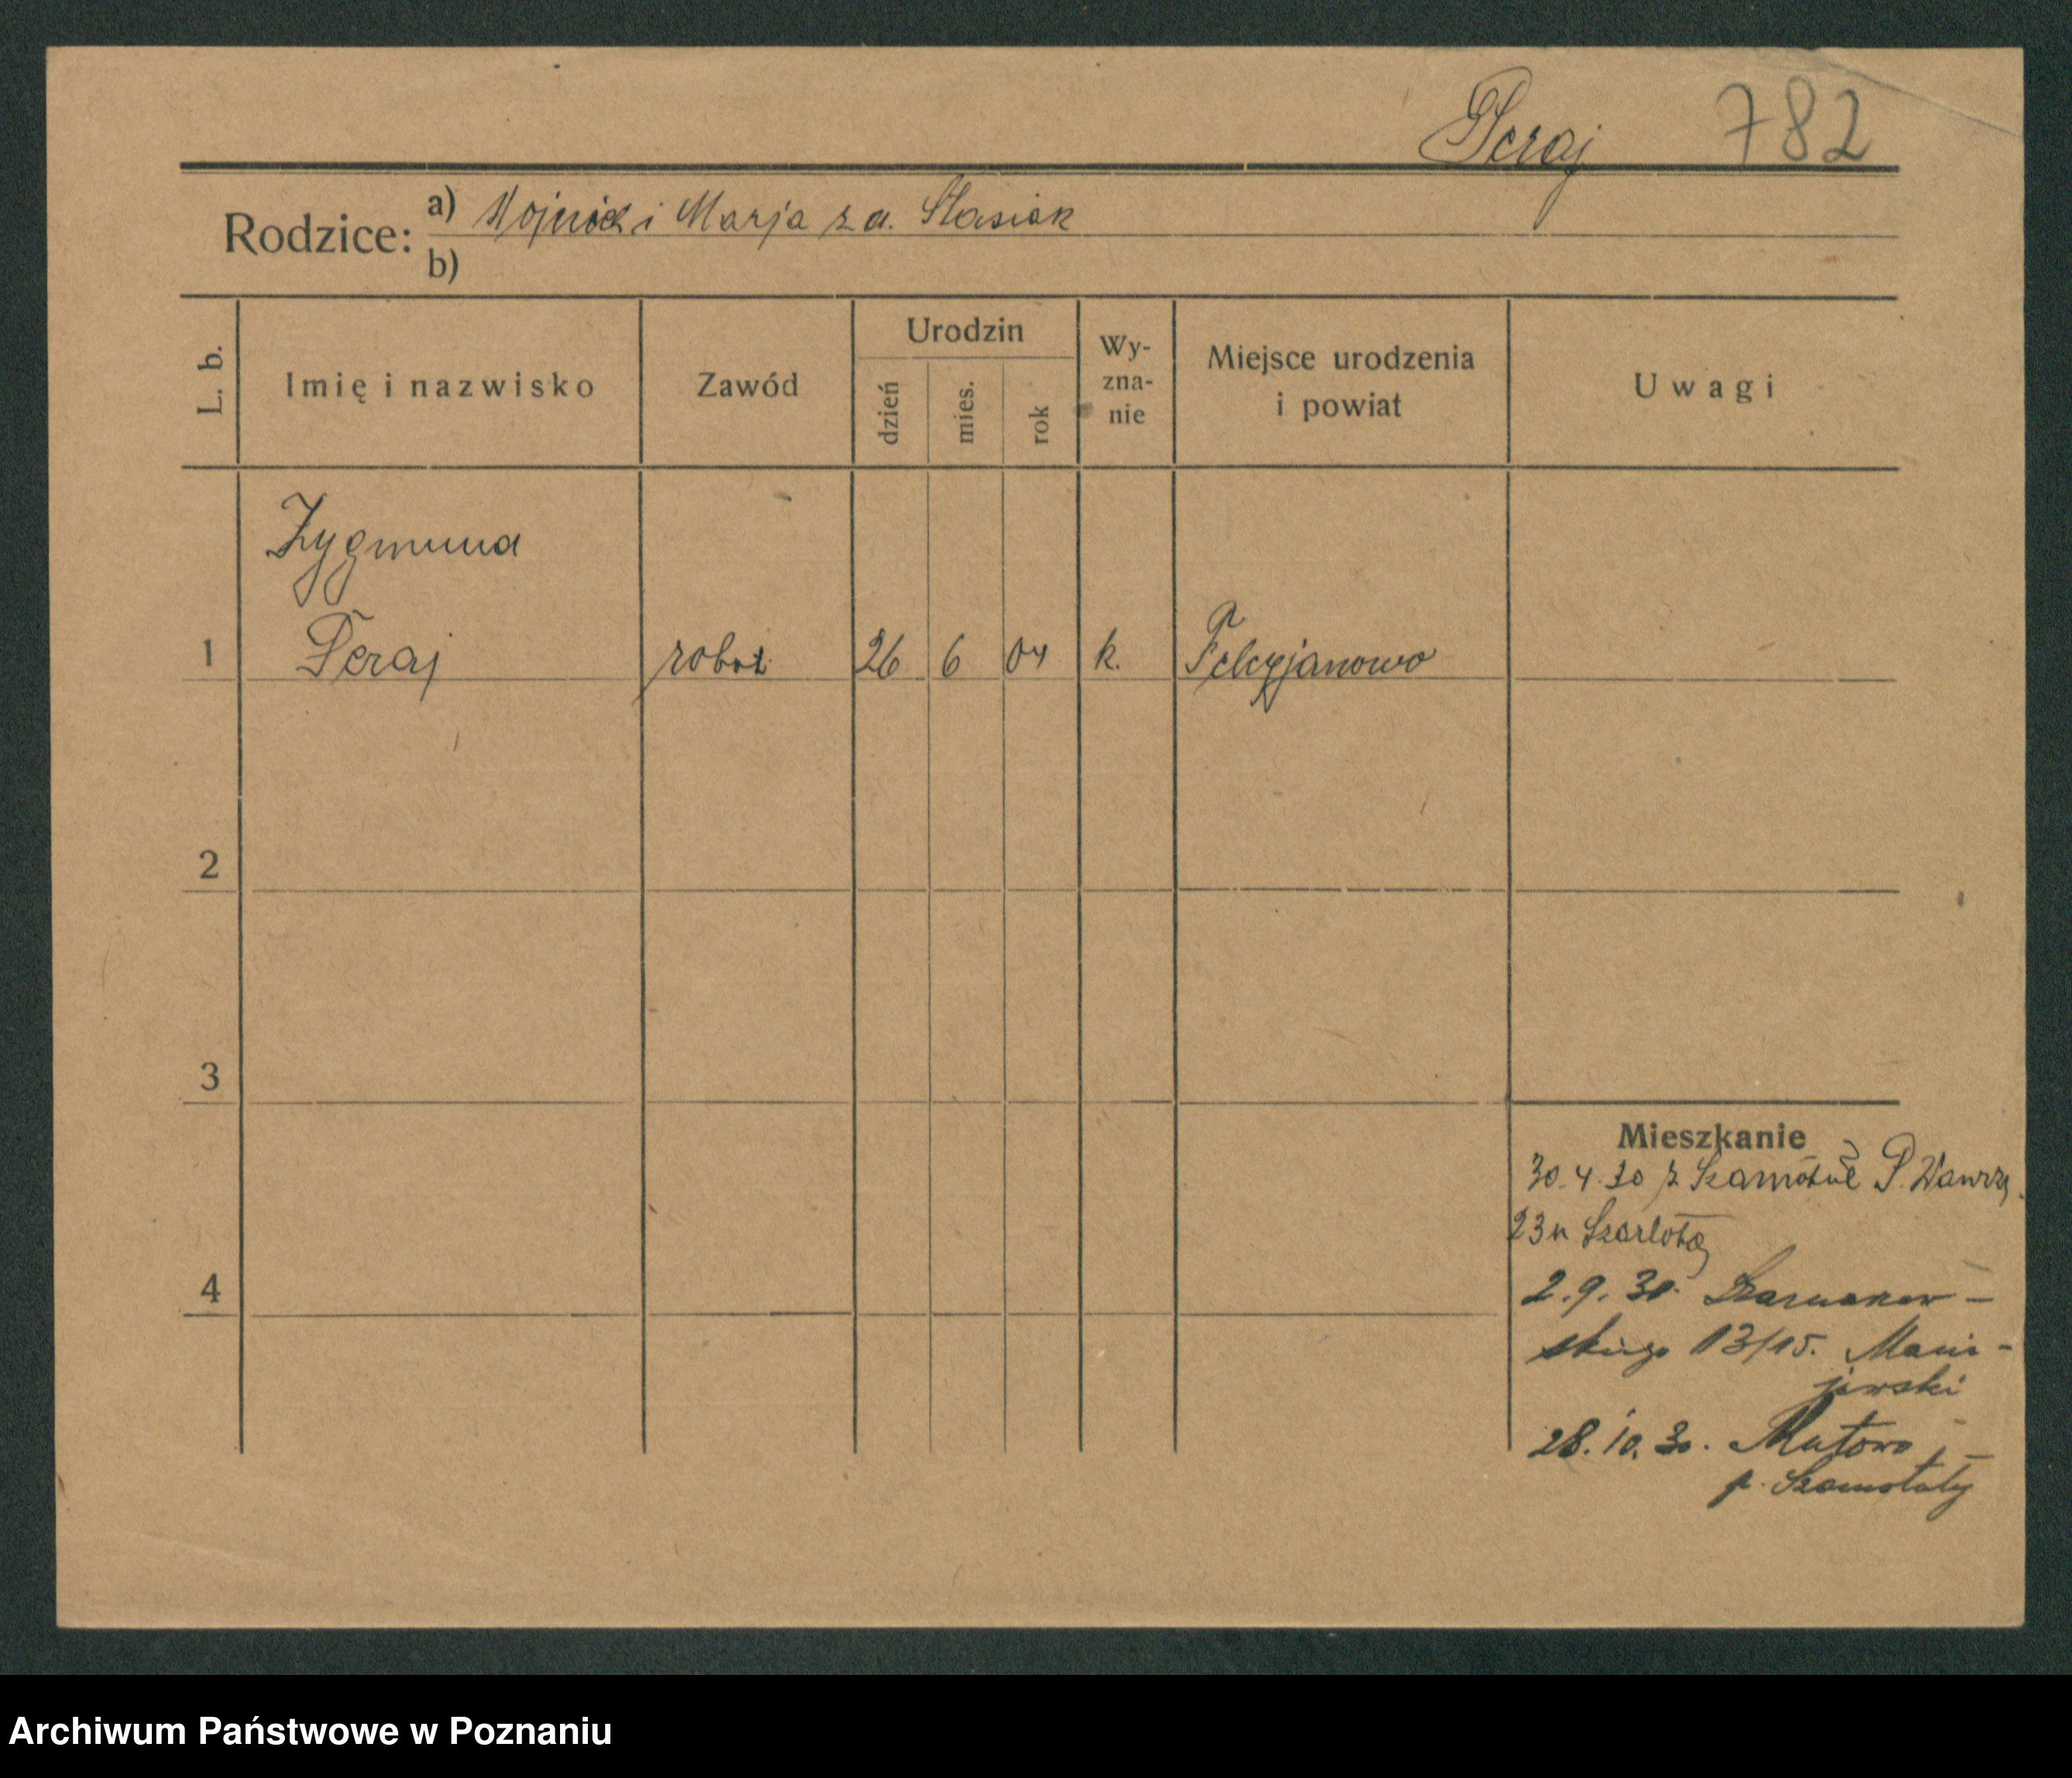 Peraj 782
Rodzice: a) Wojciech i Marja z d. Stasiak
b)
L. b. Imię i nazwisko Zawód Urodzin dzień mies. rok Wy-zna-nie Miejsce urodzenia i powiat Uwagi
Zygmund
1 Peraj robot. 26 6 04 k. Felicyjanowo
2
3
Mieszkanie
30.4.30 z Szamotuł P. Wawrzy.
23 u Szarlotą
4
2.9.30. Szarnakow-
skiego 13/15. Macie-
jewski
28.10.30. Mutowo
p. Szamotuły
Archiwum Państwowe w Poznaniu